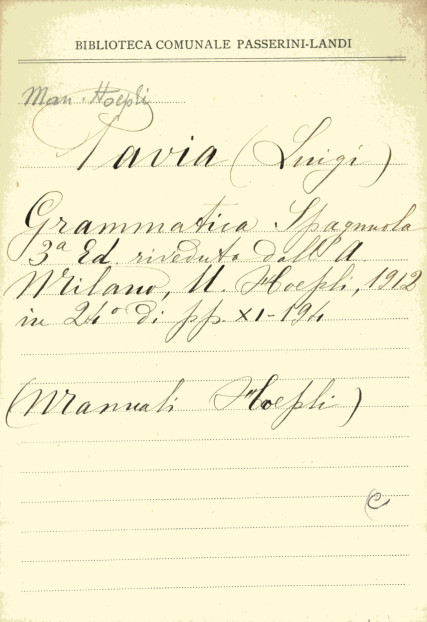 BIBLIOTECA COMUNALE PASSERINI-LANDI
Man. Hoepli
Pavia (Luigi)
Grammatica Spagnuola
3ª Ed. riveduta dall'A
Milano, U. Hoepli, 1912
in 24° di pp. XI-194
(Manuali Hoepli)
C